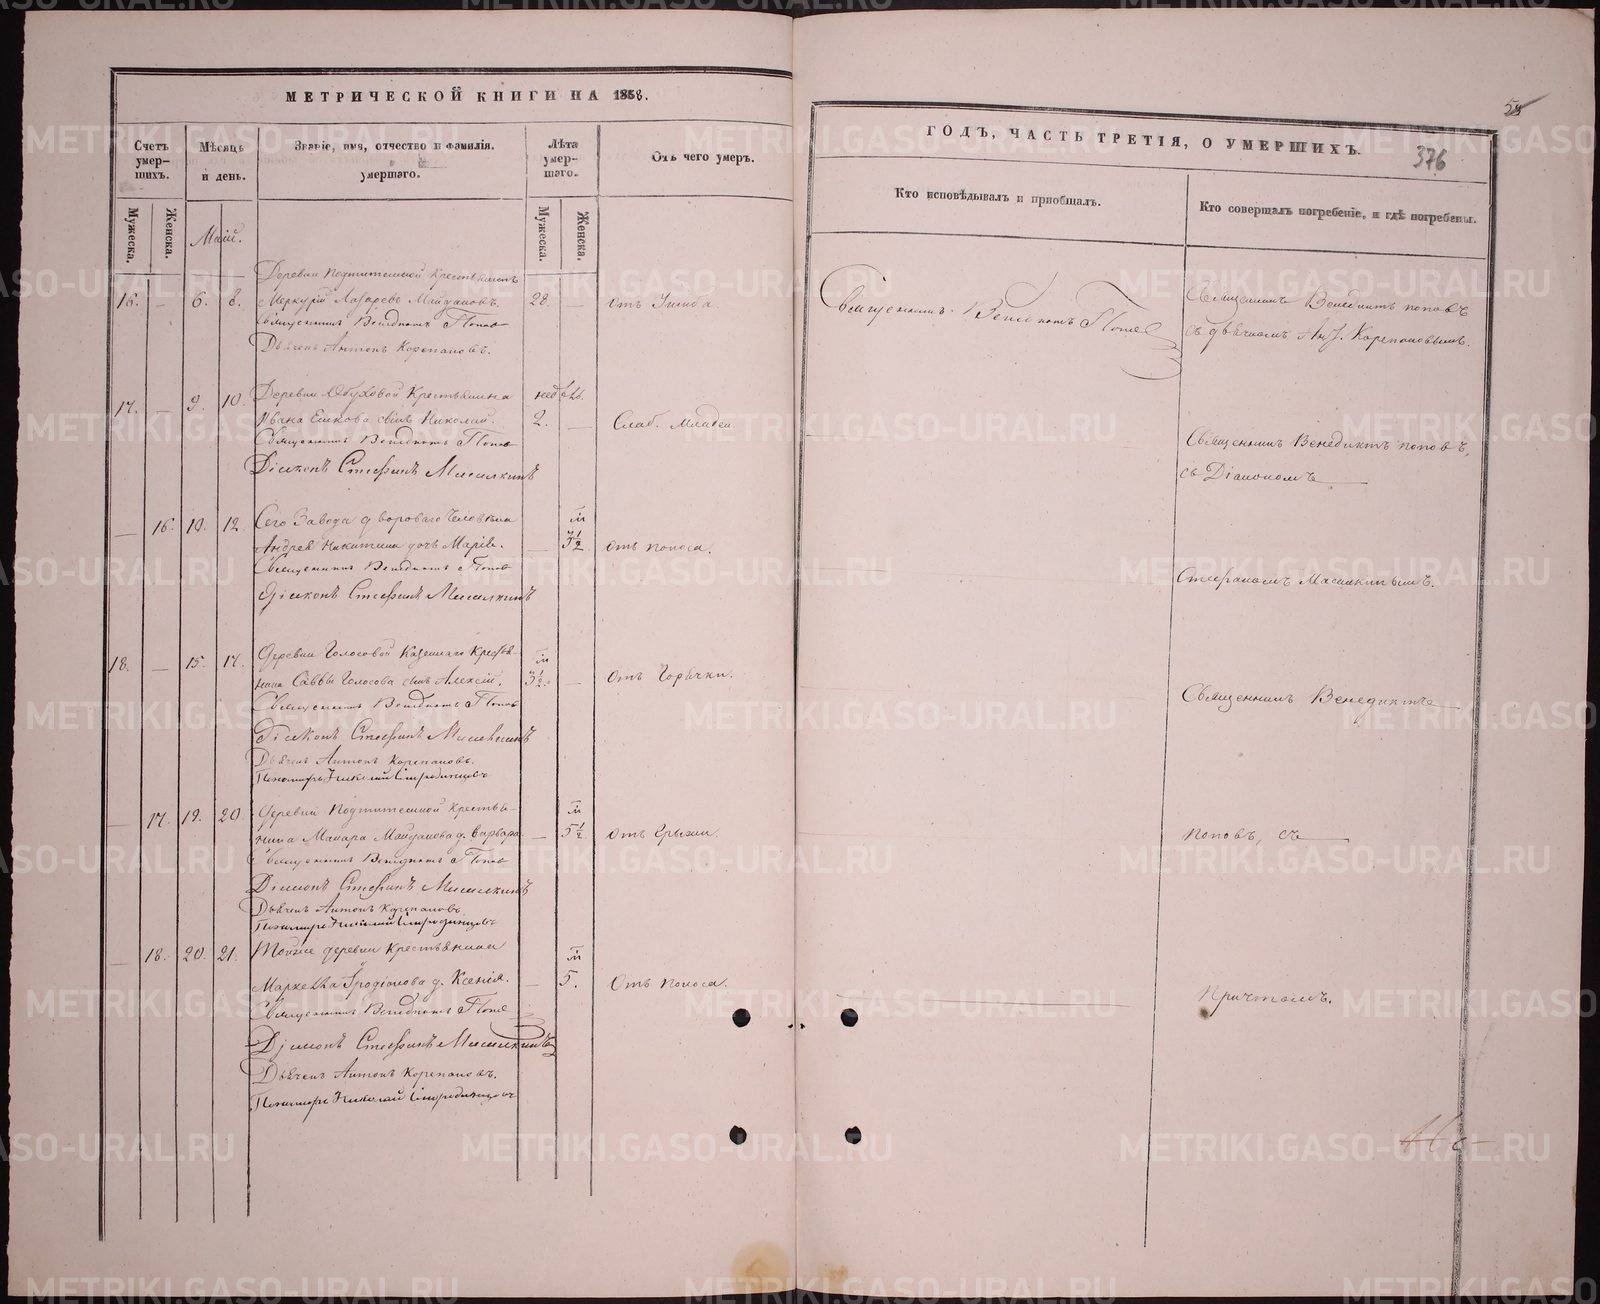 МЕТРИЧЕСКОЙ КНИГИ НА 1858.
Счетъ умер-шихъ.
Мѣсяцъ и день.
Званіе, имя, отчество и фамилія. умершаго.
Лѣта умер-шаго.
Отъ чего умеръ.
Мужеска.
Женска.
Маій.
Мужеска.
Женска.
16. — 6. 8.
Деревни Подтитешной Крестьянинъ
Меркурій Лазаревъ Майдановъ. 28. —
Священникъ Венедиктъ Поповъ
Дьячекъ Антонъ Корепановъ.
17. — 9. 10.
Деревни Обуховой Крестьянина
Ивана Ешкова сынъ Николай. 2. — Слаб. Младен.
Священникъ Венедиктъ Поповъ
Діаконъ Стефанъ Масалкинъ
— 16. 10. 12.
Сего Завода двороваго человѣка
Андрея Никитина дочь Марія. — 3 1/2 отъ поноса.
Священникъ Венедиктъ Поповъ
Діаконъ Стефанъ Масалкинъ
18. — 15. 17.
Деревни Голосовой Казеннаго Крестья-
нина Саввы Голосова сынъ Алексій. 3 1/2. — отъ Горячки.
Священникъ Венедиктъ Поповъ
Діаконъ Стефанъ Масалкинъ
Дьячекъ Антонъ Корепановъ.
Пономарь Николай
— 17. 19. 20
Деревни Подтитешной Крестья-
нина Макара Майданова д. Варвара. — 5 1/2 отъ Грыжи.
Священникъ Венедиктъ Поповъ
Діаконъ Стефанъ Масалкинъ
Дьячекъ Антонъ Корепановъ
Пономарь Николай
— 18. 20. 21.
Тойже деревни Крестьянина
Маркелла Иродіонова д. Ксенія. — 5. Отъ поноса.
Священникъ Венедиктъ Поповъ
Діаконъ Стефанъ Масалкинъ
Дьячекъ Антонъ Корепановъ.
Пономарь Николай
58
ГОДЪ, ЧАСТЬ ТРЕТІЯ, О УМЕРШИХЪ.
376
Кто исповѣдывалъ и пріобщалъ.
Кто совершалъ погребеніе, и гдѣ погребены.
Священникъ Венедиктъ Поповъ
Священникъ Венедиктъ Поповъ
съ дьячкомъ Ант. Корепановымъ.
Священникъ Венедиктъ Поповъ,
съ Діакономъ
Стефаномъ Масалкинымъ.
Священникъ Венедиктъ
Поповъ, съ
Причтомъ.
METRIKI.GASO-URAL.RU